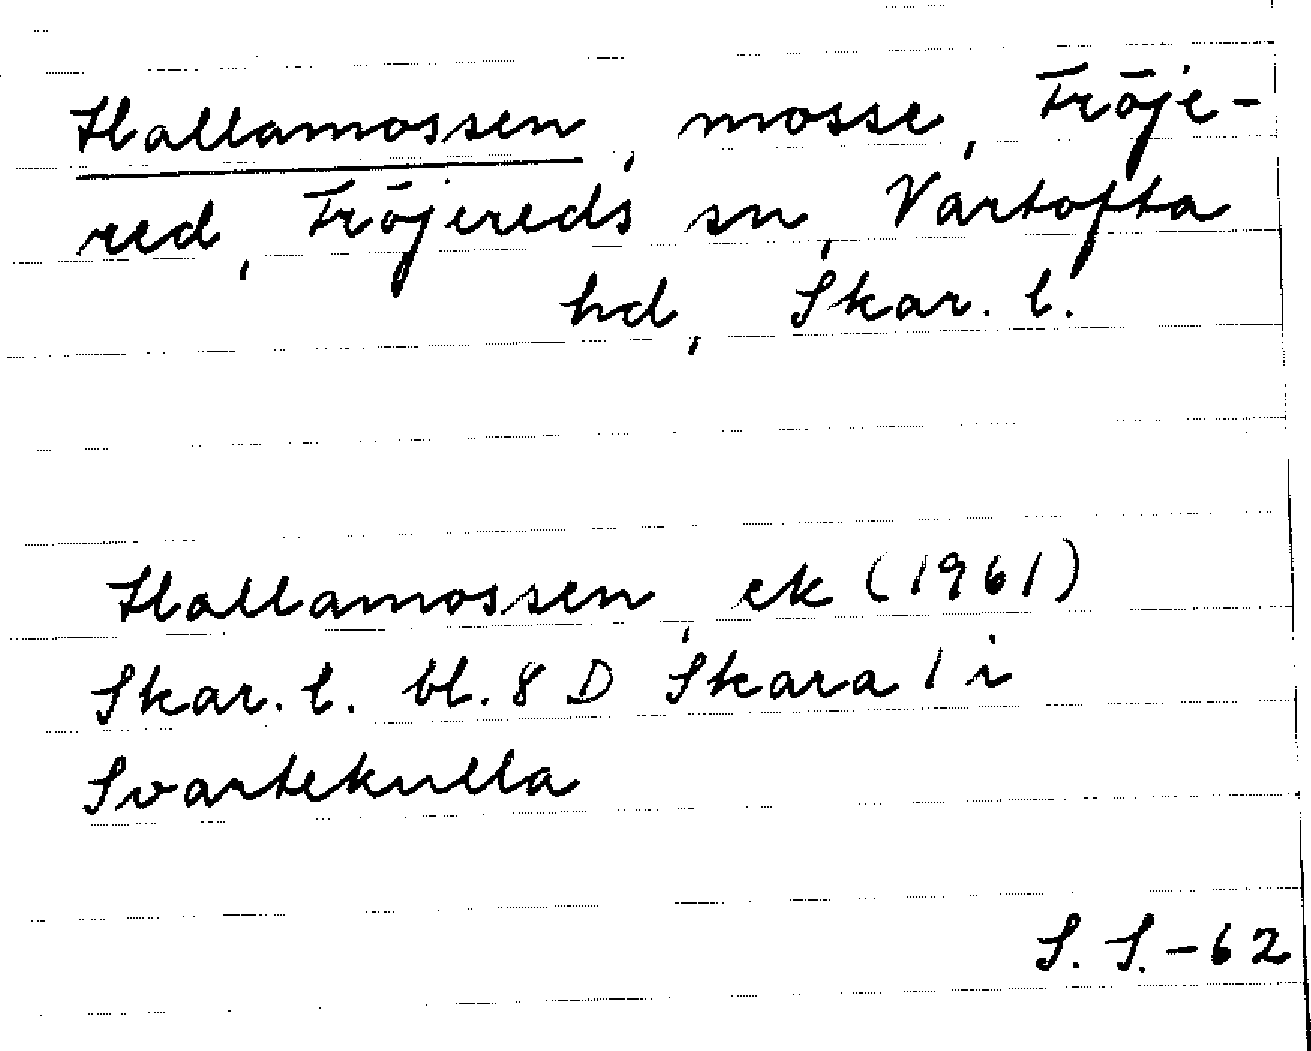 Hallamossen, mosse, Fröje-
red, Fröjereds sn, Vartofta
hd, Skar. l.
Hallamossen, ek (1961)
Skar. l. bl. 8 D Skara 1 i
Svartekulla
S. S. - 62